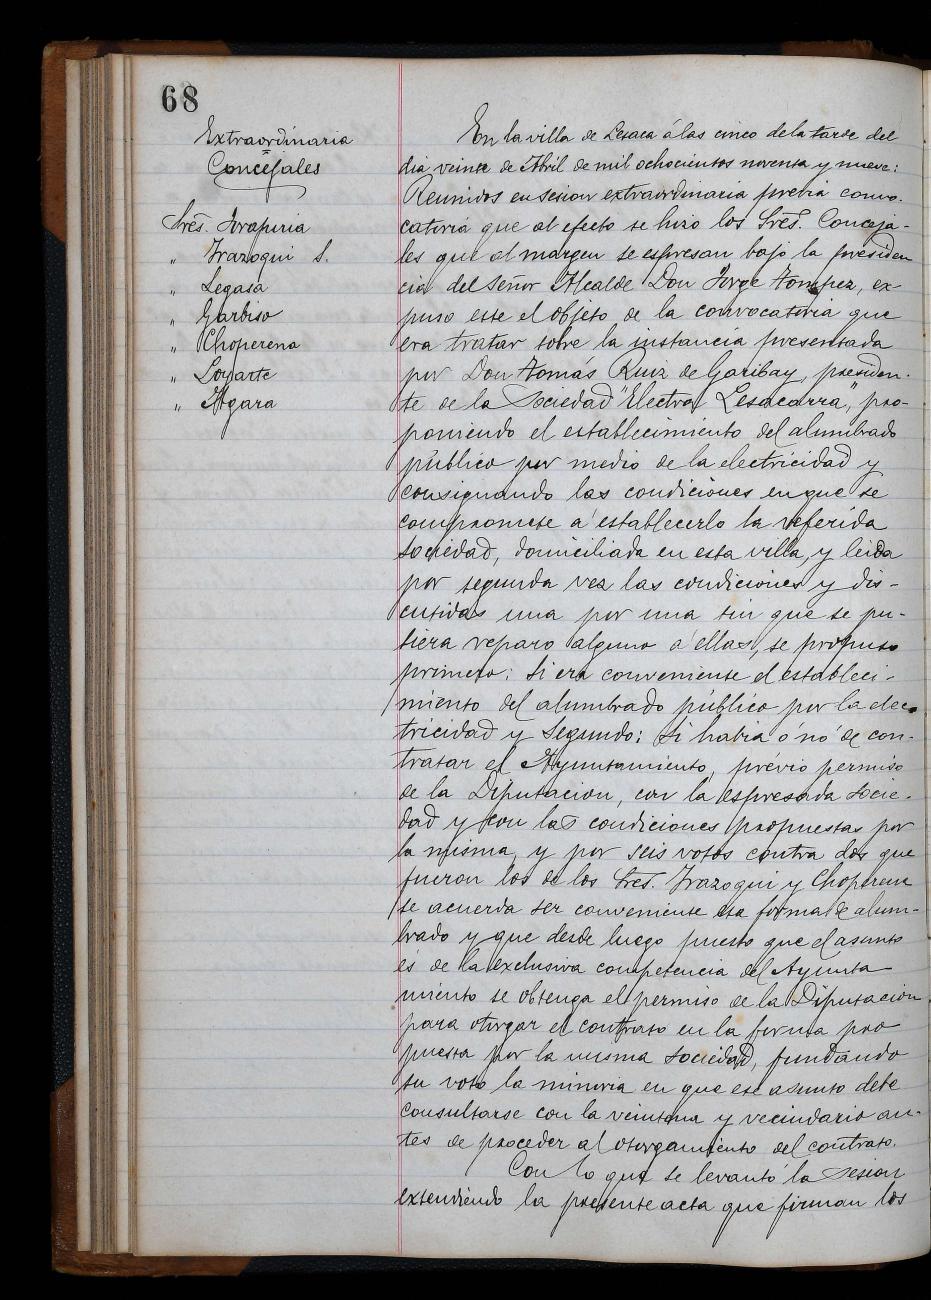 68
Extraordinaria
Concejales
Sres. Irapiria
" Irazoqui S.
" Legasa
" Garbiso
" Choperena
" Loyarte
" Algara
En la villa de Lesaca á las cinco de la tarde del
dia veinte de Abril de mil ochocientos noventa y nueve:
Reunidos en sesion extraordinaria prévia convo-
catoria que al efecto se hizo los Sres. Conceja-
les que al margen se espresan bajo la presiden
cia del Señor Alcalde Don Jorge Tompez, ex-
puso este el objeto de la convocatoria que
era tratar sobre la instancia presentada
por Don Tomás Ruiz de Garibay, presiden-
te de la Sociedad "Electra Lesacarra", pro-
poniendo el establecimiento del alumbrado
público por medio de la electricidad y
consignando las condiciones en que se
compromete á establecerlo la referida
sociedad, domiciliada en esta villa, y leida
por segunda vez las condiciones y dis-
cutidas una por una sin que se pu-
siera reparo alguno á ellas, se propuso
primero: Si era conveniente el estableci-
miento del alumbrado público por la elec-
tricidad y Segundo: Si habia ó nó de con-
tratar el Ayuntamiento, prévio permiso
de la Diputacion, con la espresada socie-
dad y con las condiciones propuestas por
la misma, y por seis votos contra dos que
fueron los de los Sres. Irazoqui y Choperena
se acuerda ser conveniente esa forma de alum-
brado y que desde luego puesto que el asunto
es de la exclusiva competencia del Ayunta
miento se obtenga el permiso de la Diputacion
para otorgar el contrato en la forma pro
puesta por la misma sociedad, fundando
su voto la minoria en que ese asunto debe
consultarse con la veintena y vecindario an-
tes de proceder al otorgamiento del contrato.
Con lo que se levantó la sesion
extendiendo la presente acta que firman los